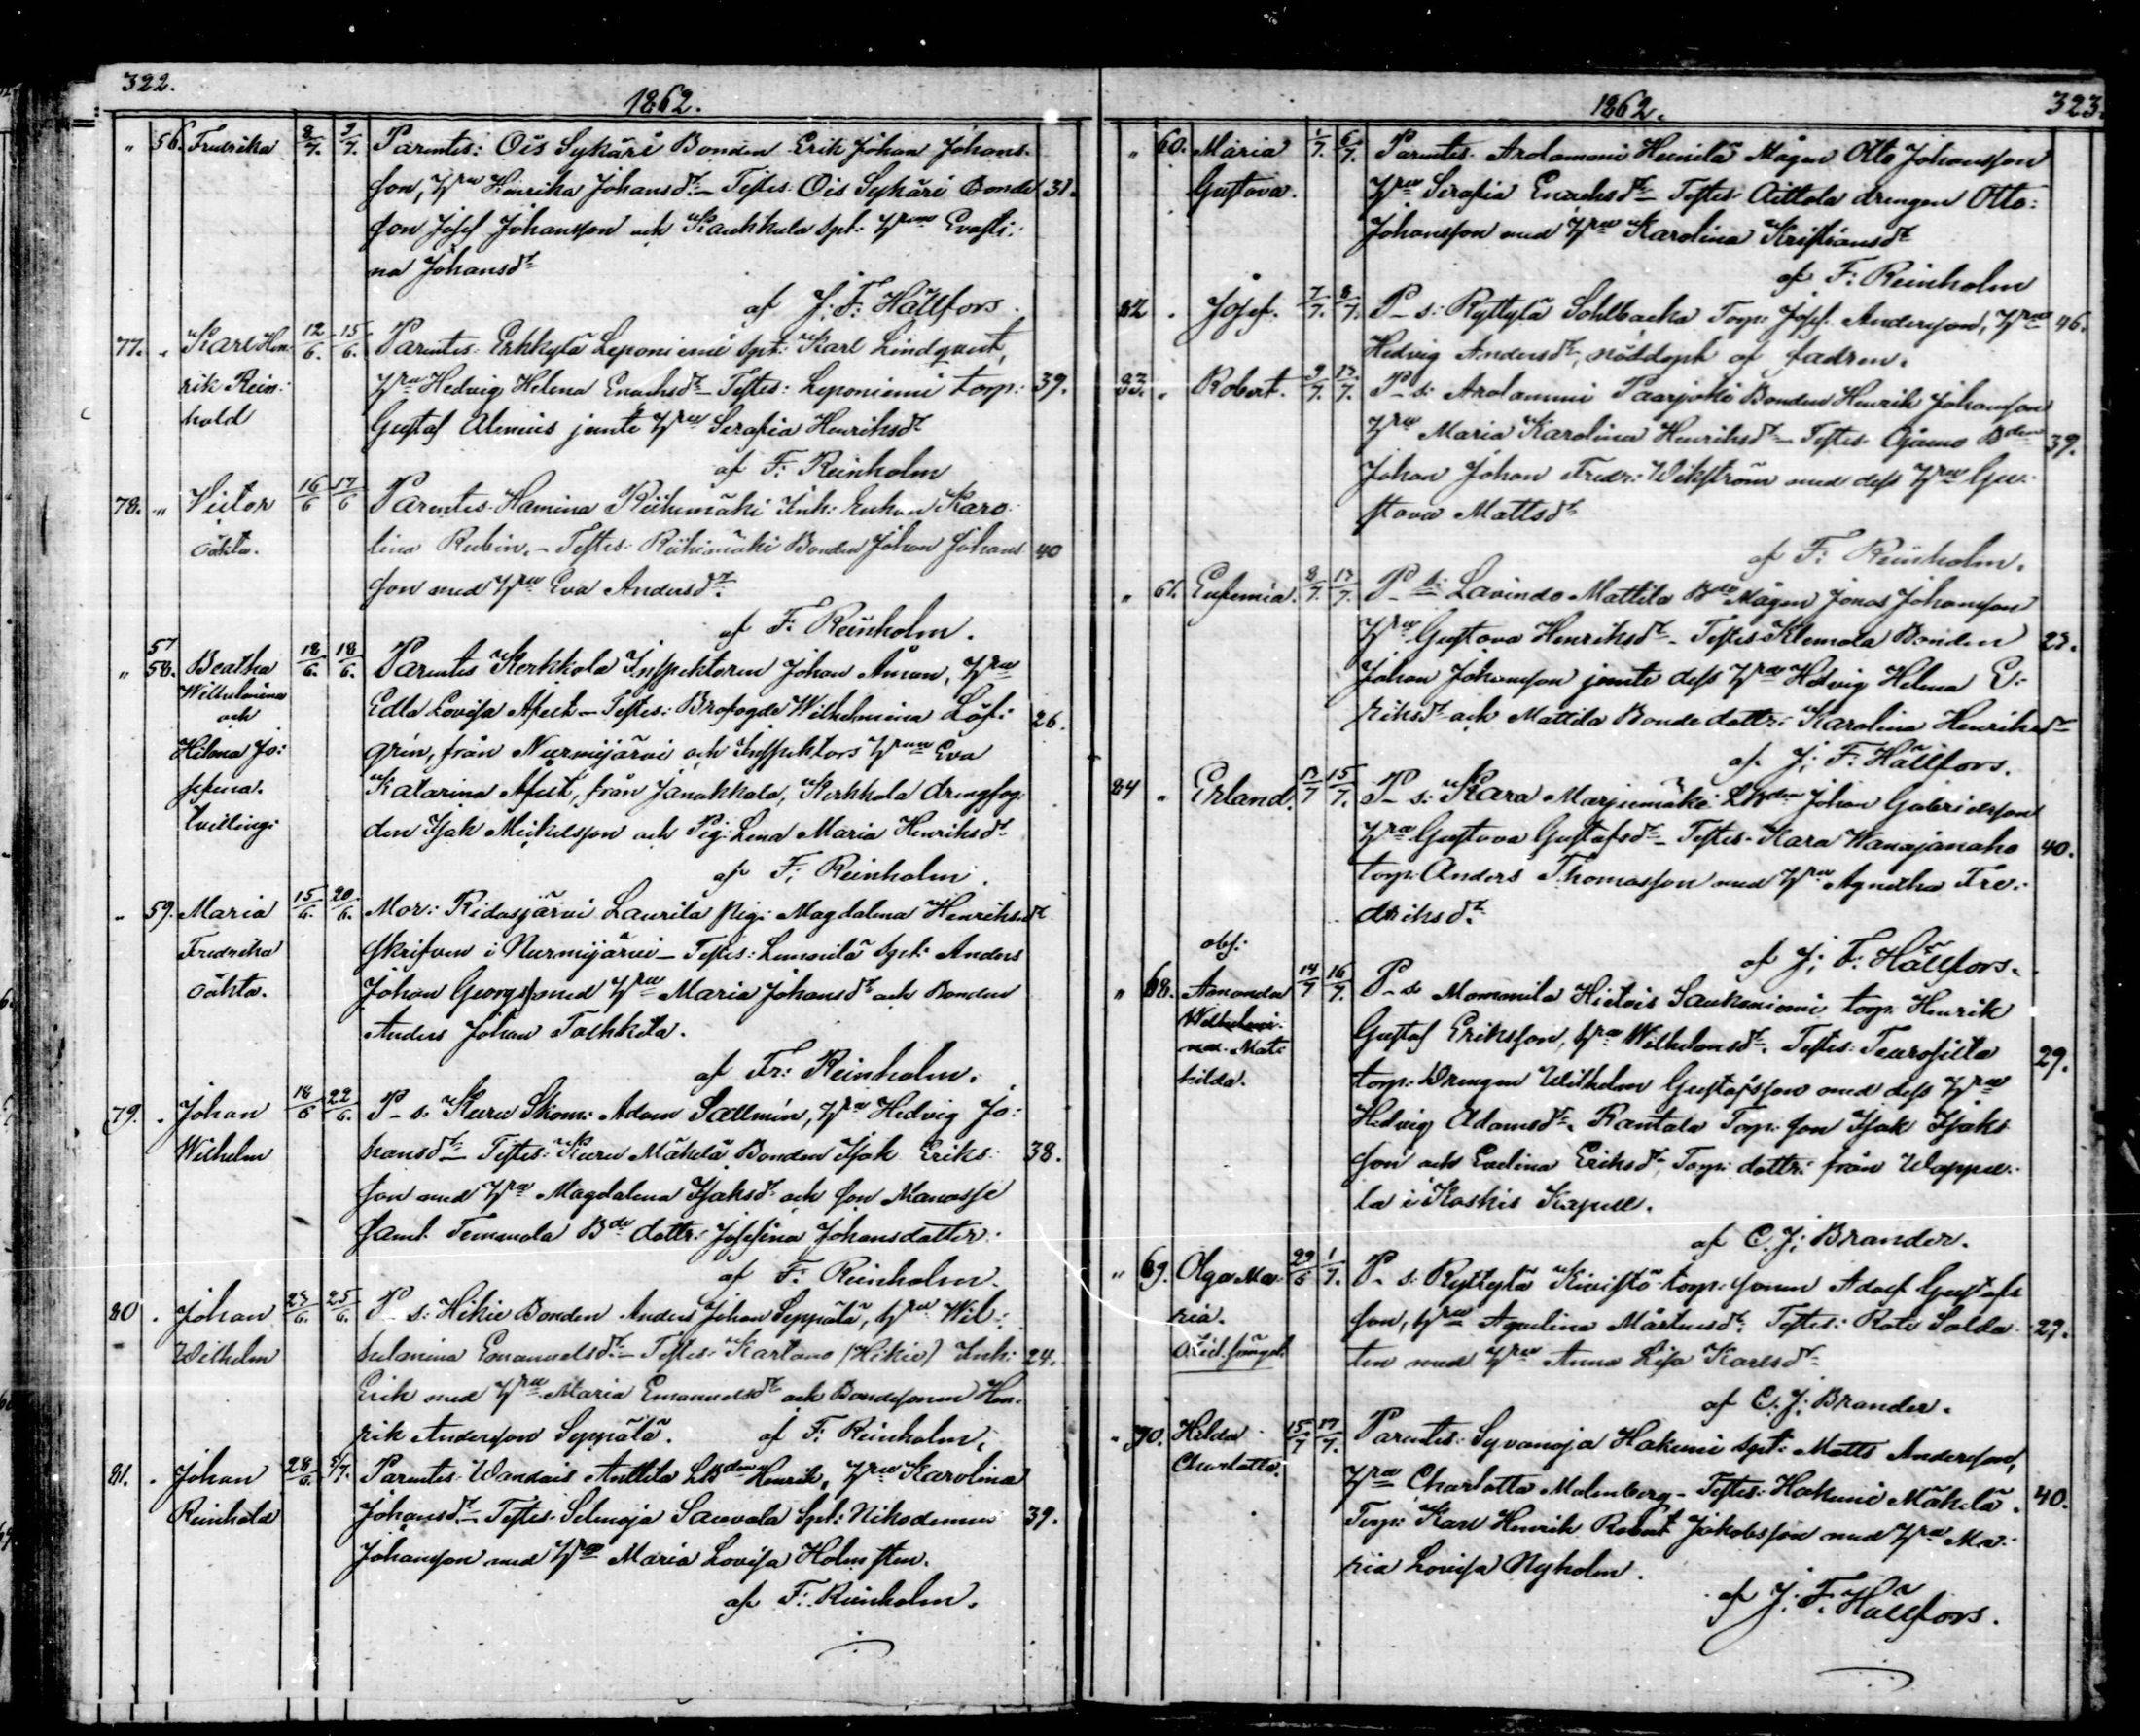 322.
1862.
" 56. Fredrika 8/7. 9/7. Parentes: Ois Sykäri Bonden Erik Johan Johans-
son, Hru Henrika Johansdr – Testes: Ois Sykäri Bonde 31.
son Josef Johansson och Kaukkula Spt: Hrun Evasti:
na Johansdr
af J: F: Hällfors.
77. " Karl Hen- 12/6. 15/6. Parentes: Erkkylä Leponiemi Spt: Karl Lindqvist,
rik Rein- Hru Hedvig Helena Enochsdr – Testes: Leponiemi torp: 39.
hold Gustaf Alenius jemte Hru Serafia Henriksdr
af F: Reinholm
78. " Victor 16/6 17/6 Parentes: Hamina Riihimäki Inh: Enkan Karo-
oäkta. lina Rubin. – Testes: Riihimäki Bonden Johan Johans 40
son med Hru Eva Andersdr.
af F: Reinholm.
" 57 58. Beatha 18/6. 18/6. Parentes Kerkkola Inspektoren Johan Åman, Hru
Wilhelmina
och Edla Lovisa – Testes: Brofogde Wilhelmina Löf: 26.
Hilma Jo: grén, från Nurmijärvi och Inspektors Hrun Eva
sefina. Katarina från Janakkala, Kerkkola drengfog
tvilling: den Isak Mickelsson och Pig: Lena Maria Henriksdr
af F: Reinholm.
" 59. Maria 15/6. 20/6. Mor: Ridasjärvi Laurila pig: Magdalena Henriksdr
Fredrika skrifven i Nurmijärvi – Testes: Lemonilä Spt: Anders
oäkta. Johan Georgs: med Hru Maria Johansdr och Bonden
Anders Johan
af Fr: Reinholm.
79. " Johan 18/6 22/6. P– s: Kuru Skom: Adam Sallmén, Hru Hedvig Jo:
Wilhelm hansdr – Testes: Kuru Mäkelä Bonden Isak Eriks: 38.
son med Hru Magdalena Isaksdr och son Manasse
saml. Temmola Bde dottr: Josefina Johansdotter.
af F: Reinholm.
80 " Johan 23/6. 25/6. P– s: Hikie Bonden Anders Johan Seppälä, Hru Wil:
Wilhelm helmina Emanuelsdr – Testes: Kartano (Hikie) Inh: 24.
Erik med Hru Maria Emanuelsdr och Bondesonen Hen-
rik Andersson Seppälä. af F: Reinholm.
81. " Johan 28/6. 5/7. Parentes: Wandais Anttila LBden Henrik, Hru Karolina
Reinhold Johansdr – Testes: Selmoja Spt: Nikodemus 39.
Johansson med Hru Maria Lovisa Holmsten.
af F: Reinholm.
1862. 323.
" 60. Maria 1/7. 6/7. Parentes: Arolammi Heinilä Mågen Otto Johansson
Gustava. Hru Serafia Enochsdr – Testes: Aittola drengen Otto:
Johansson med Hru Karolina Kristiansdr
af F: Reinholm
82 " Josef. 7/7. 8/7. P– s: Ryttylä Sohlbacka Torp: Josef Andersson, Hru 46.
Hedvig Andersdr, nöddöpt af fadren.
83. " Robert. 9/7. 13/7. P– s: Arolammi Paarjoki Bonden Henrik Johansson
Hru Maria Karolina Henriksdr – Testes: Bden 39.
Johan Johan Fredr: Wikström med dess Hru Gu-
stava Mattsdr
af F: Reinholm.
" 61. Eufemia. 8/7. 13/7. P– s: Lavindo Mattila Bde Mågen Jonas Johansson
Hru Gustava Henriksdr – Testes: Klemola Bonden 23.
Johan Johansson jemte dess Hru Hedvig Helena E:
riksdr och Mattila Bonde dottr: Karolina Henriksdr
af J: F: Hällfors.
84 " Erland. 13/7 15/7. P– s: Kara Marjamäki LBden Johan Gabrielsson
Hru Gustava Gustafsdr – Testes: Kara Wanajanaho 40.
torp: Anders Thomasson med Hru Agnetha Fre-
driksdr
af J: F: Hällfors.
obs:
" 68. Amanda 14/7 16/7. P– s Mommila Hietois Saukoniemi torp: Henrik
Wilhelmi-
na Mat- Gustaf Eriksson, Hru Wilhelmsdr. Testes: 29.
hilda. torp: Drengen Wilhelm Gustafsson med dess Hru
Hedvig Adamsdr, Rantala Torp: son Isak Isaks
son och Evelina Eriksdr, Torp: dottr: från Wappu-
la i Koskis Kapell.
af C. J: Brander.
" 69. Olga Ma- 29/6 1/7. P– s: Ryttylä Kivistö torp: sonen Adolf Gustafs
ria. son, Hru Aqvelina Mårtensdr. Testes: Rote Solda- 27.
ten med Hru Anna Lisa Karlsdr
af C. J: Brander.
" 70. Hilda 15/7 17/7. Parentes: Syvänoja Hakuni Spt: Matts Andersson,
Charlotta. Hru Charlotta Malmberg – Testes: Hakuni Mäkelä. 40.
Torp: Karl Henrik Robert Jakobsson med Hru Ma-
ria Lovisa Nyholm.
af J: F: Hällfors.